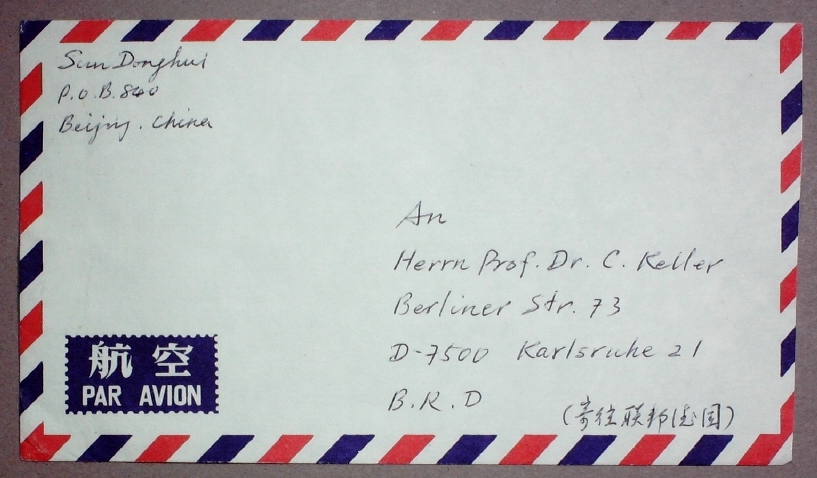 Sun Donghui
P.O.B. 840
Beijing. China
An
Herrn Prof. Dr. C. Keller
Berliner Str. 73
D-7500 Karlsruhe 21
B.R.D
(寄往联邦德国)
航空
PAR AVION